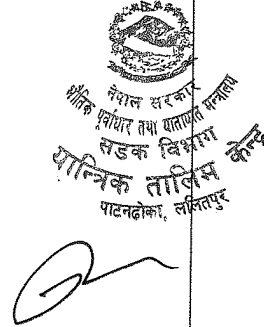 नेपाल सरकार
भौतिक पूर्वाधार तथा यातायात मन्त्रालय
सडक विभाग
यान्त्रिक तालिम केन्द्र
पाटनढोका, ललितपुर